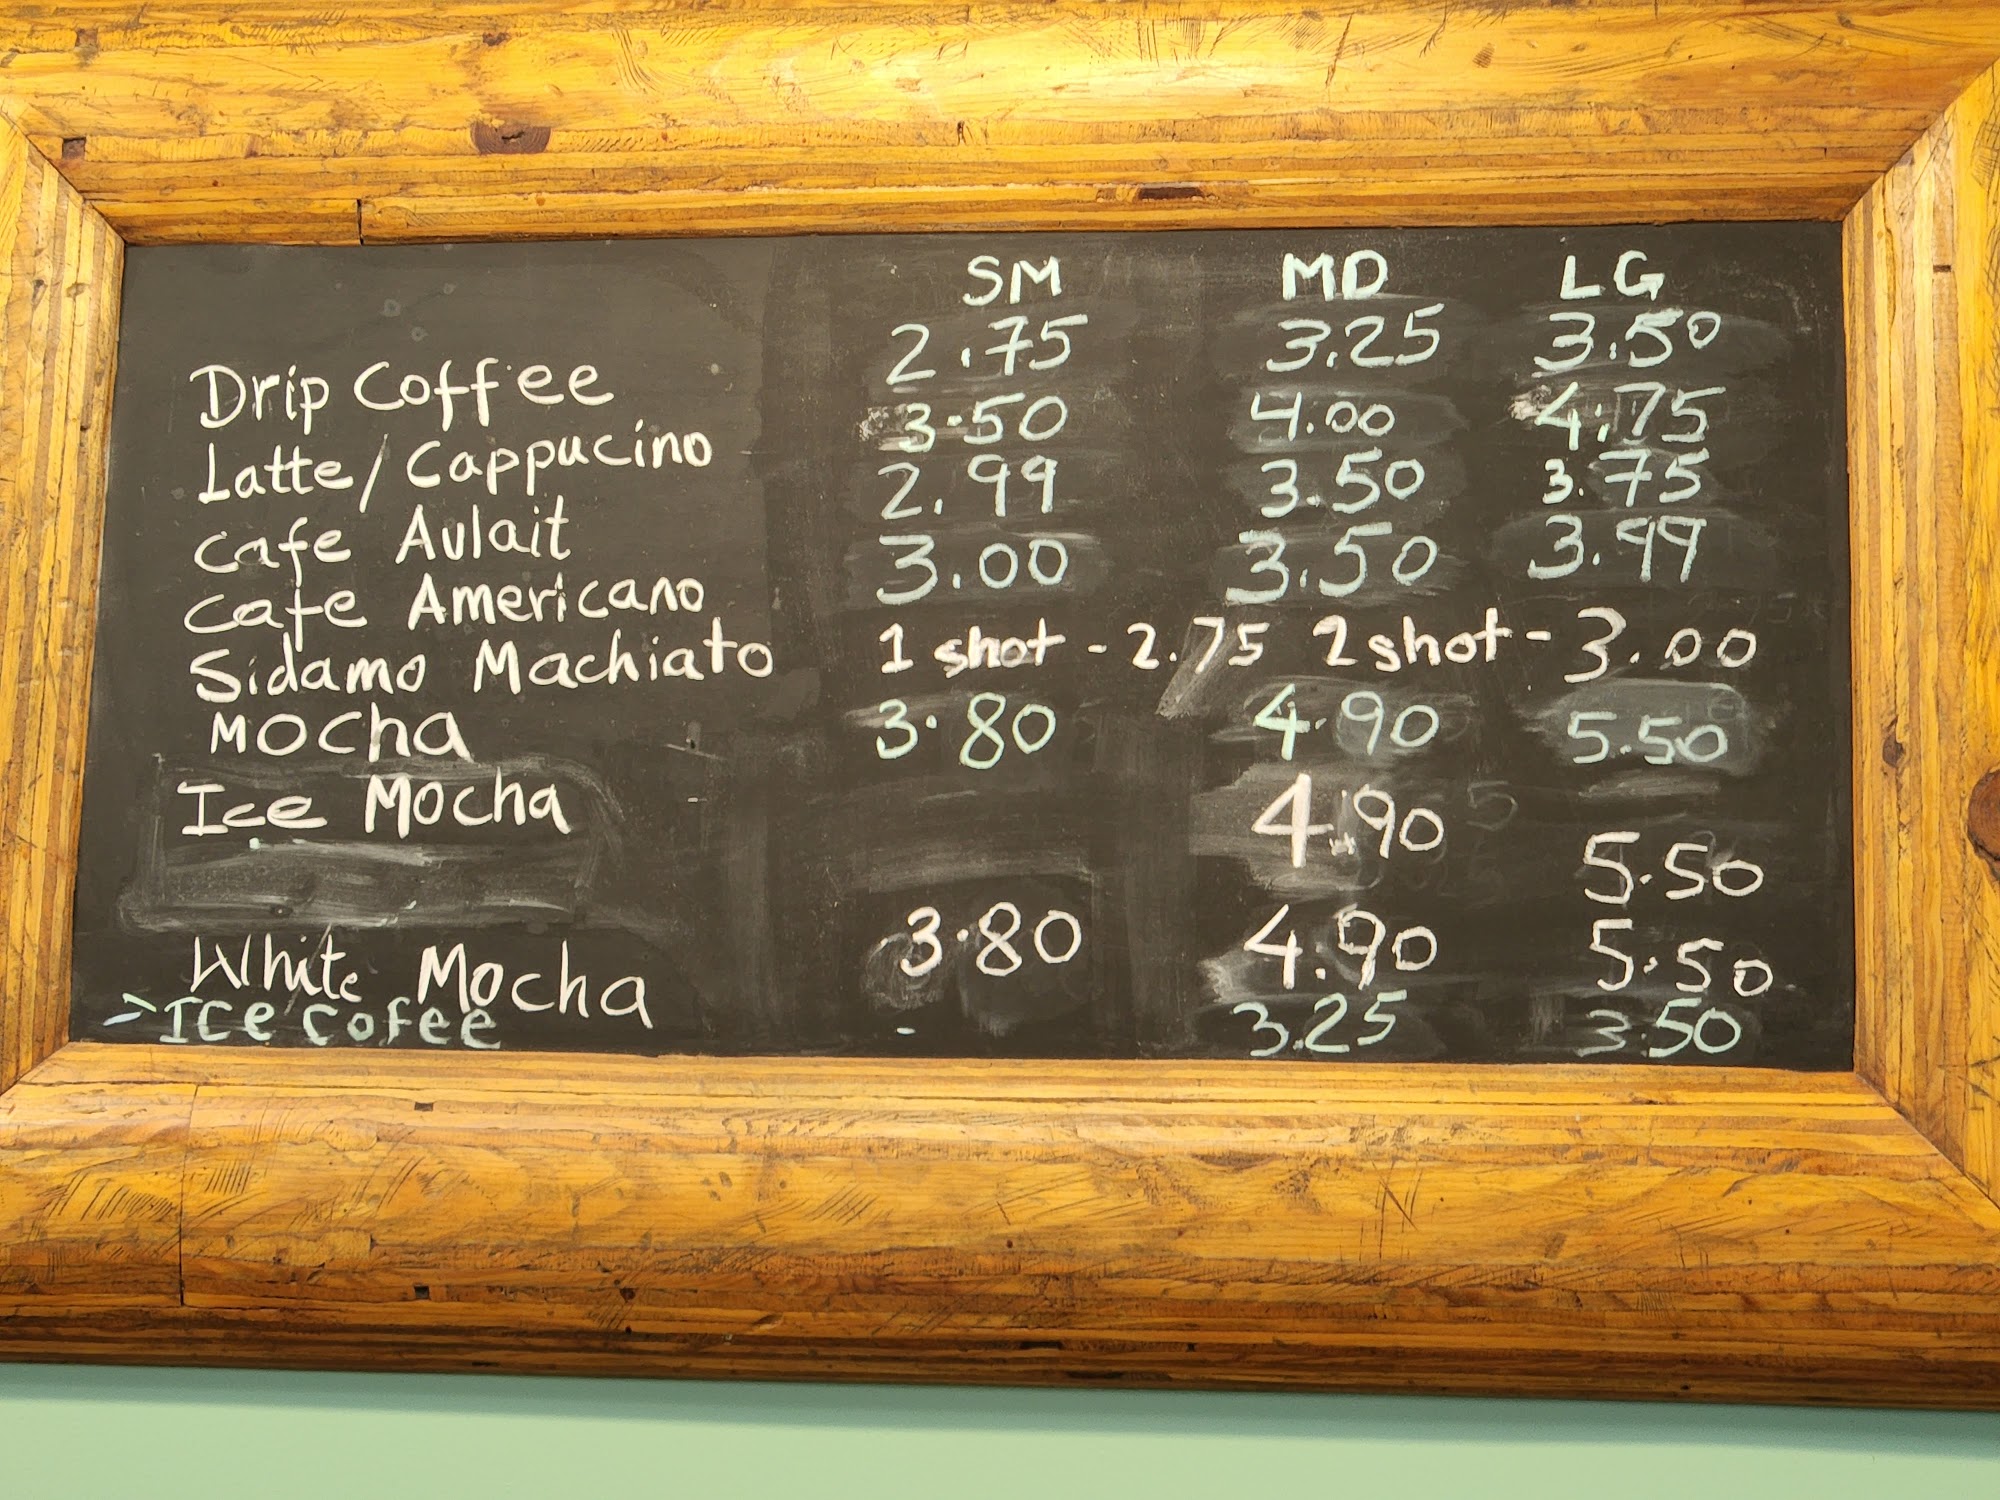 SM MD LG
Drip Coffee 2.75 3.25 3.50
Latte/Cappucino 3.50 4.00 4.75
Cafe Aulait 2.99 3.50 3.75
Cafe Americano 3.00 3.50 3.99
Sidamo Machiato 1 shot - 2.75 2 shot - 3.00
Mocha 3.80 4.90 5.50
Ice Mocha 4.90 5.50
White Mocha 3.80 4.90 5.50
>Ice cofee - 3.25 3.50